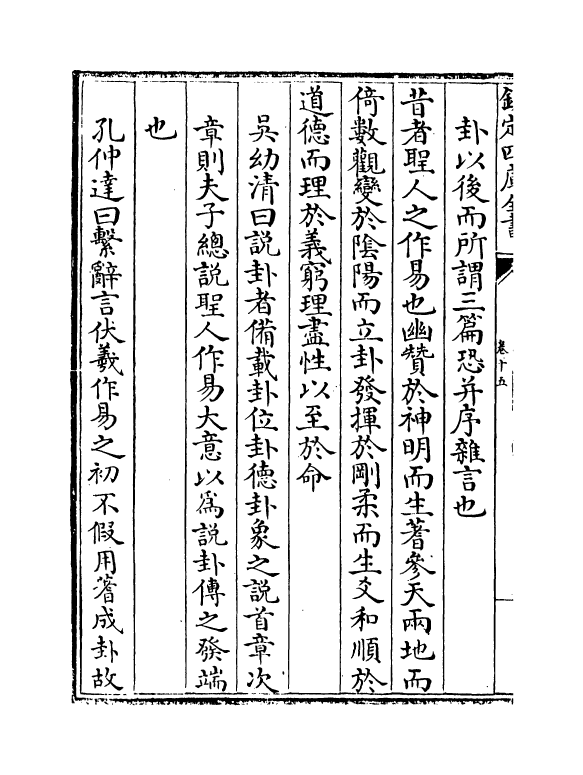 欽定四庫全書
卷十五
卦以後而所謂三篇恐并序雜言也
昔者聖人之作易也幽贊於神明而生蓍參天兩地而
倚數觀變於陰陽而立卦發揮於剛柔而生爻和順於
道德而理於義窮理盡性以至於命
吳幼清曰說卦者備載卦位卦德卦象之說首章次
章則夫子總說聖人作易大意以為說卦傳之發端
也
孔仲達曰繫辭言伏羲作易之初不假用蓍成卦故